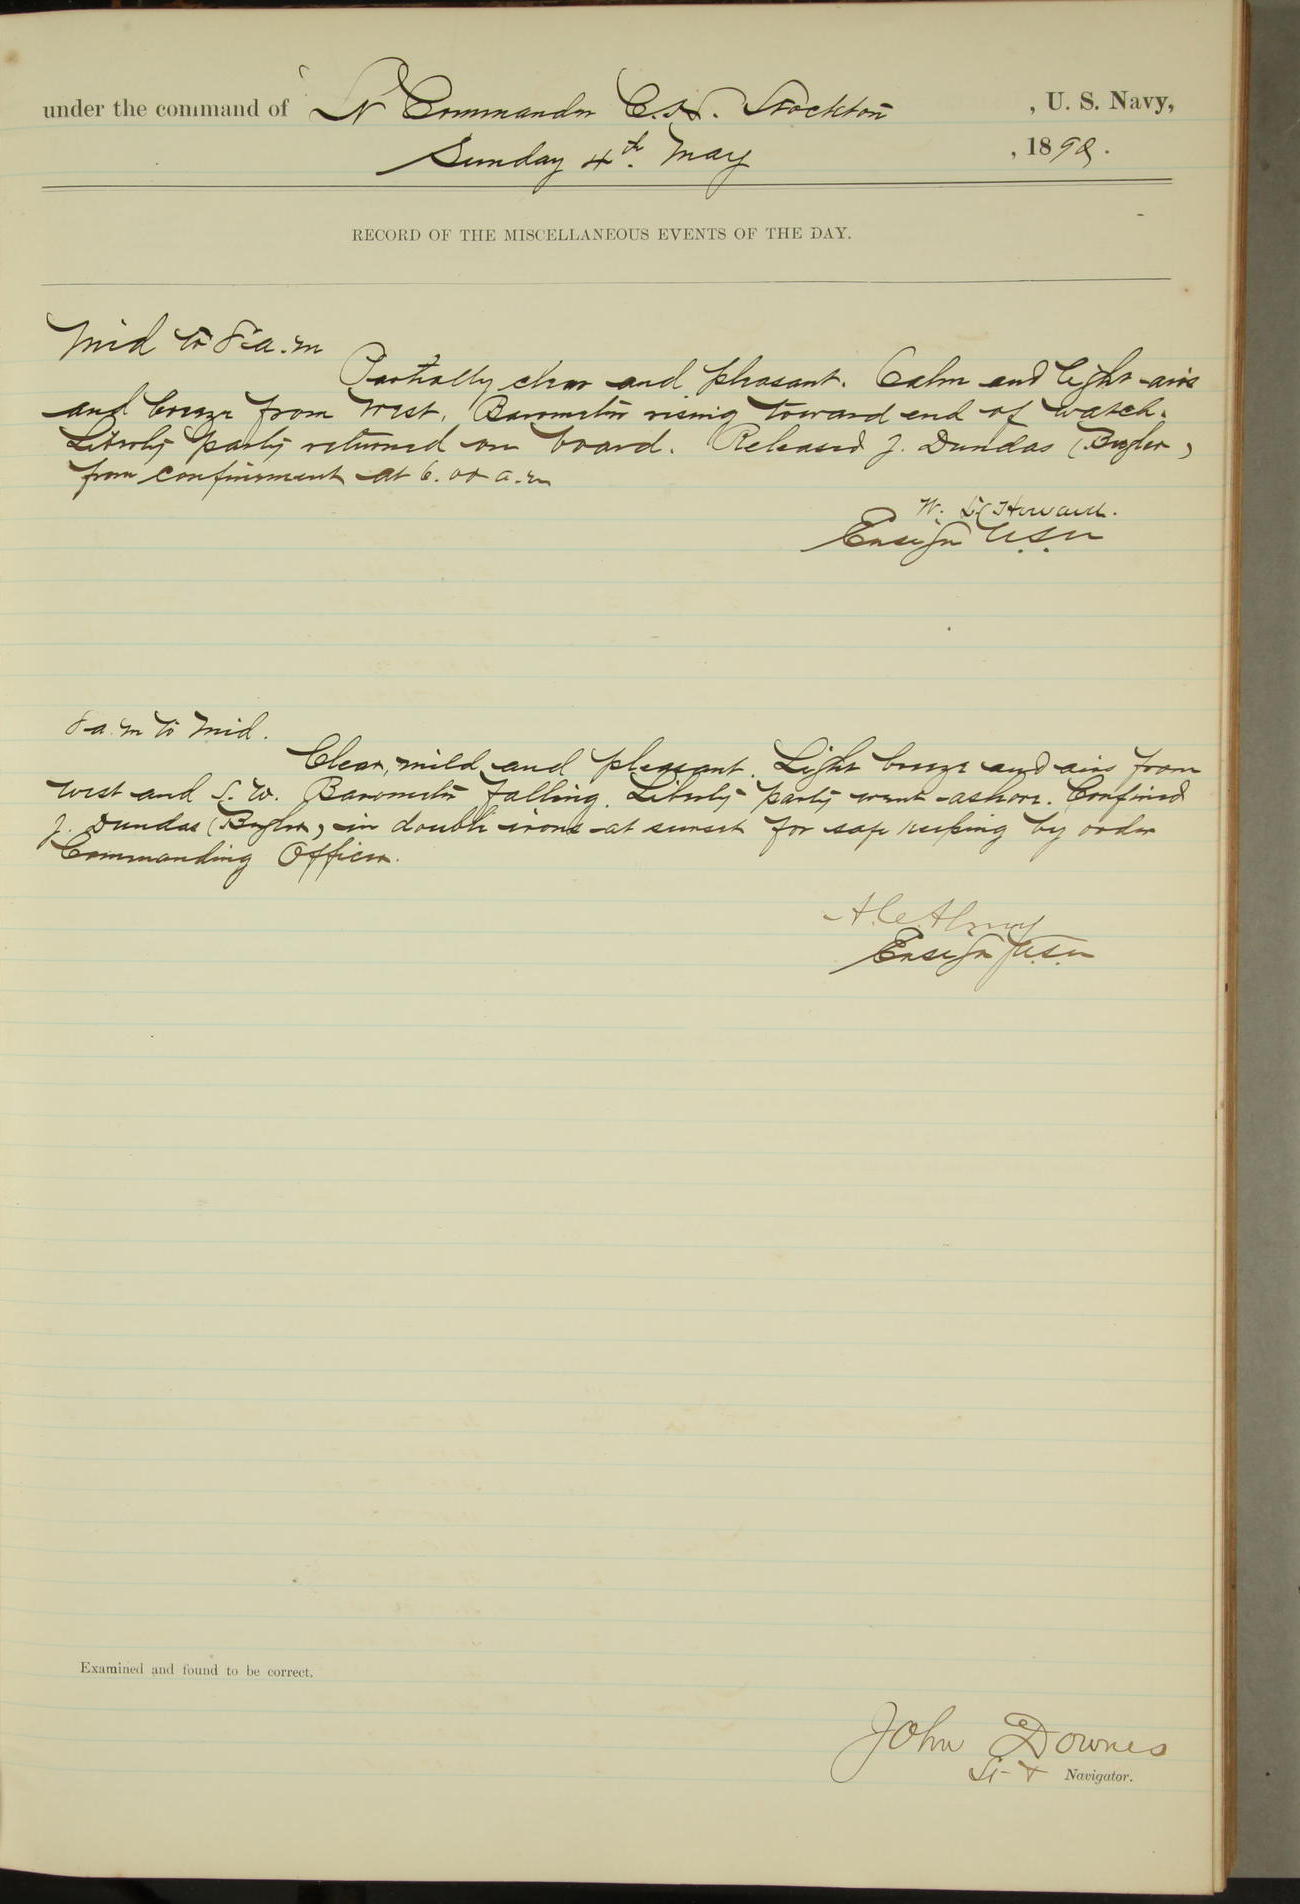 under the command of Lt Commander C.H. Stockton, U. S. Navy,
Sunday 4th. May, 1890.
RECORD OF THE MISCELLANEOUS EVENTS OF THE DAY.
Mid to 8 a.m
Partially clear and pleasant. Calm and light airs
and breeze from West. Barometer rising toward end of watch.
Liberty party returned on board. Released J. Dundas (Bugler)
from confinement at 6.00 a.m
W. L. Howard.
Ensign U.S.N
8 a.m to Mid.
Clear, mild and pleasant. Light breeze and airs from
West and S.W. Barometer falling. Liberty party went ashore. Confined
J. Dundas (Bugler) in double irons at sunset for safe keeping by order
Commanding Officer.
A.C. Almy
Ensign U.S.N
Examined and found to be correct.
John Downes
Lt + Navigator.